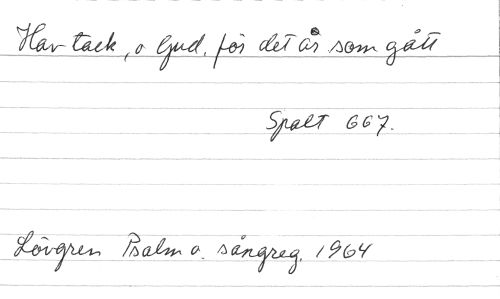 Hav tack, o Gud, för det år som gått
Spalt 667.
Lövgren Psalm o. sångreg. 1964